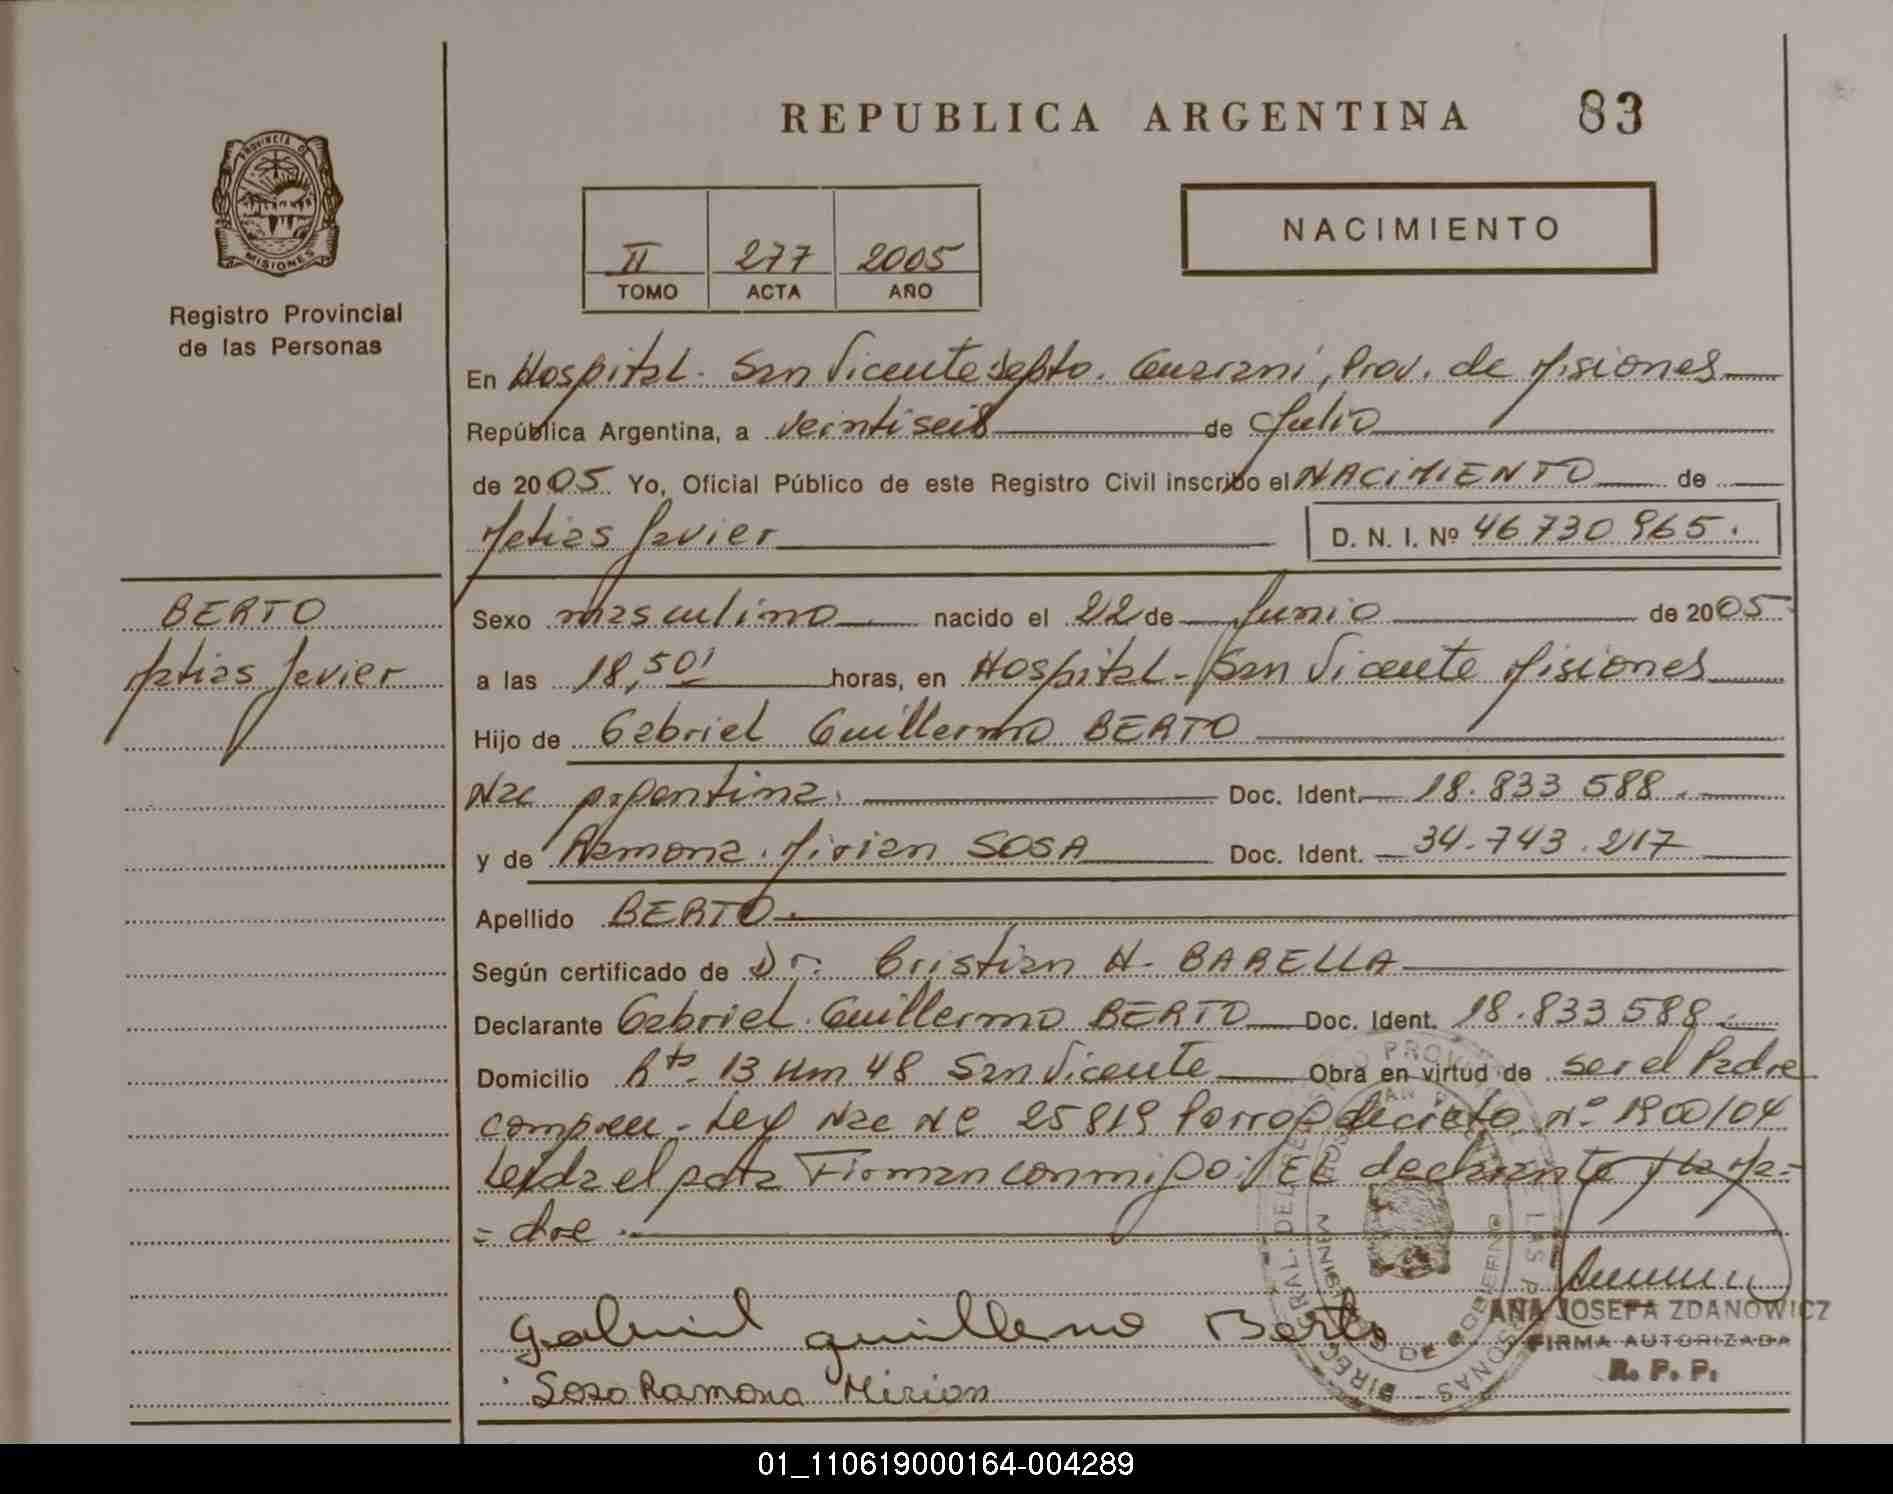 REPUBLICA ARGENTINA 83
PROVINCIA D
MISIONES
Registro Provincial
de las Personas
NACIMIENTO
II 277 2005
TOMO ACTA AÑO
En Hospital. San Vicente Depto. Guarani, Prov. de Misiones
República Argentina, a veintiseis de Julio
de 2005 Yo, Oficial Público de este Registro Civil inscribo el NACIMIENTO de
Matias Javier D. N. I. Nº 46 730 965.
BERTO
Matias Javier
Sexo masculino nacido el 22 de Junio de 2005
a las 18,50' horas, en Hospital - San Vicente Misiones
Hijo de Gabriel Guillermo BERTO
Nac Argentina. Doc. Ident. 18.833 588.
y de Ramona. Mirian SOSA Doc. Ident. 34.743.217
Apellido BERTO.
Según certificado de Dr. Cristian H. BARELLA
Declarante Gabriel Guillermo BERTO Doc. Ident. 18.833 588
Domicilio Rta. 13 Km 48 San Vicente Obra en virtud de ser el Padre
Ley Nac Nº 25819 Prorrog decreto nº 1900/04
Leida el Acta Firman conmigo: El declarante y la Ma=
=dre.
Gabriel guillermo Berto
Sosa Ramona Mirian
ANA JOSEFA ZDANOWICZ
FIRMA AUTORIZADA
R. P. P.
01_110619000164-004289